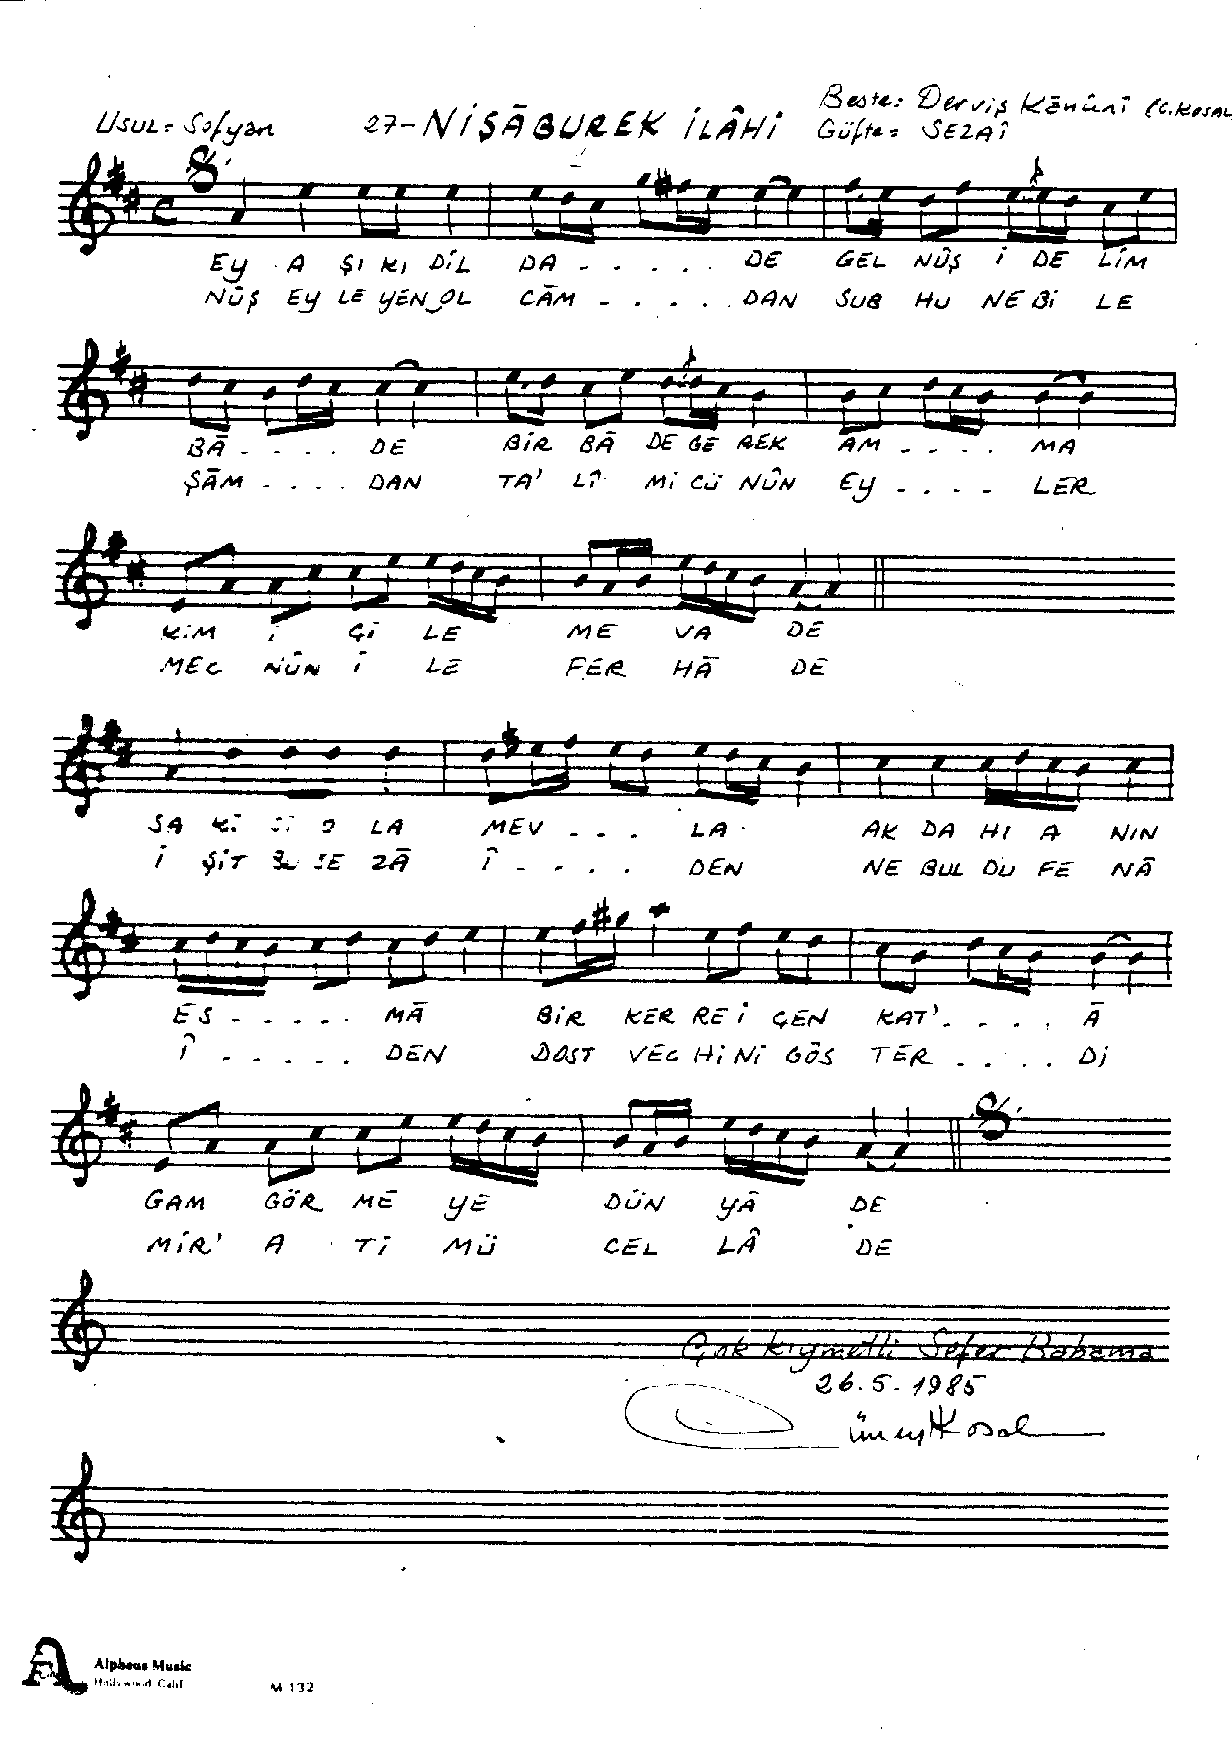 Usul: Sofyan 27-NİŞÂBUREK İLÂHİ Beste: Derviş Kânûnî (C.KOSAL
Güfte: SEZAÎ
EY A ŞI KI DİL DA - - - - - DE GEL NÛŞ İ DE LİM
NÛŞ EY LE YEN OL CÂM - - - - DAN SUB HU NE Bİ LE
BÂ - - - - DE BİR BÂ DE GE REK AM - - - - MA
ŞÂM - - - - DAN TA' LÎ Mİ CÜ NÛN EY - - - - LER
KİM İ Çİ LE ME VA DE
MEC NÛN İ LE FER HÂ DE
SA KÎ Sİ O LA MEV - - - LA AK DA HI A NIN
İ ŞİT SE ZÂ Î - - - - DEN NE BUL DU FE NÂ
ES - - - - - MÂ BİR KER RE İ ÇEN KAT' - - - - Â
Î - - - - - DEN DOST VEC Hİ Nİ GÖS TER - - - - Dİ
GAM GÖR ME YE DÜN YÂ DE
MİR' A TI MÜ CEL LÂ DE
Çok kıymetli Sefer Babama
26.5.1985
Cüneyt Kosal
Alpheus Music
Hollywood Calif
M 132